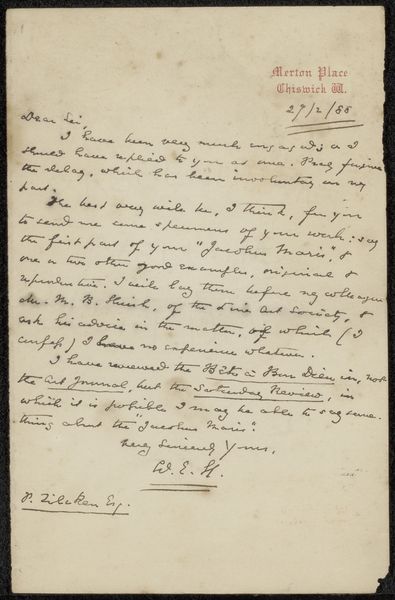 Merton Place
Chiswick W.
27/2/88
Dear Sir,
I have been very much engaged; or I
should have replied to you at once. Pray forgive
the delay, which has been involuntary on my
part.
The best way will be, I think, for you
to send me some specimens of your work: say
the first part of your "Jacobus Maris", &
one or two other good examples, original &
reproductive. I will lay them before my colleague
Mr. M. B. Huish, of the Fine Art Society, &
ask his advice in the matter, of which (I
confess) I have no experience whatever.
I have reviewed the Bête à Bon Dieu in, not
the Art Journal, but the Saturday Review, in
which it is possible I may be able to say some-
thing about the "Jacobus Maris".
Very Sincerely Yours,
W. E. H.
P. Zilcken Esq.